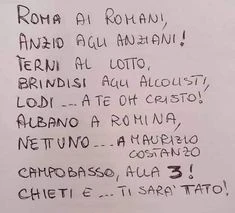 ROMA AI ROMANI,
ANZIO AGLI ANZIANI!
TERNI AL LOTTO,
BRINDISI AGLI ALCOLISTI,
LODI ... A TE OH CRISTO!
ALBANO A ROMINA,
NETTUNO ... A MAURIZIO
COSTANZO
CAMPOBASSO, ALLA 3!
CHIETI E ... TI SARA' TATO!